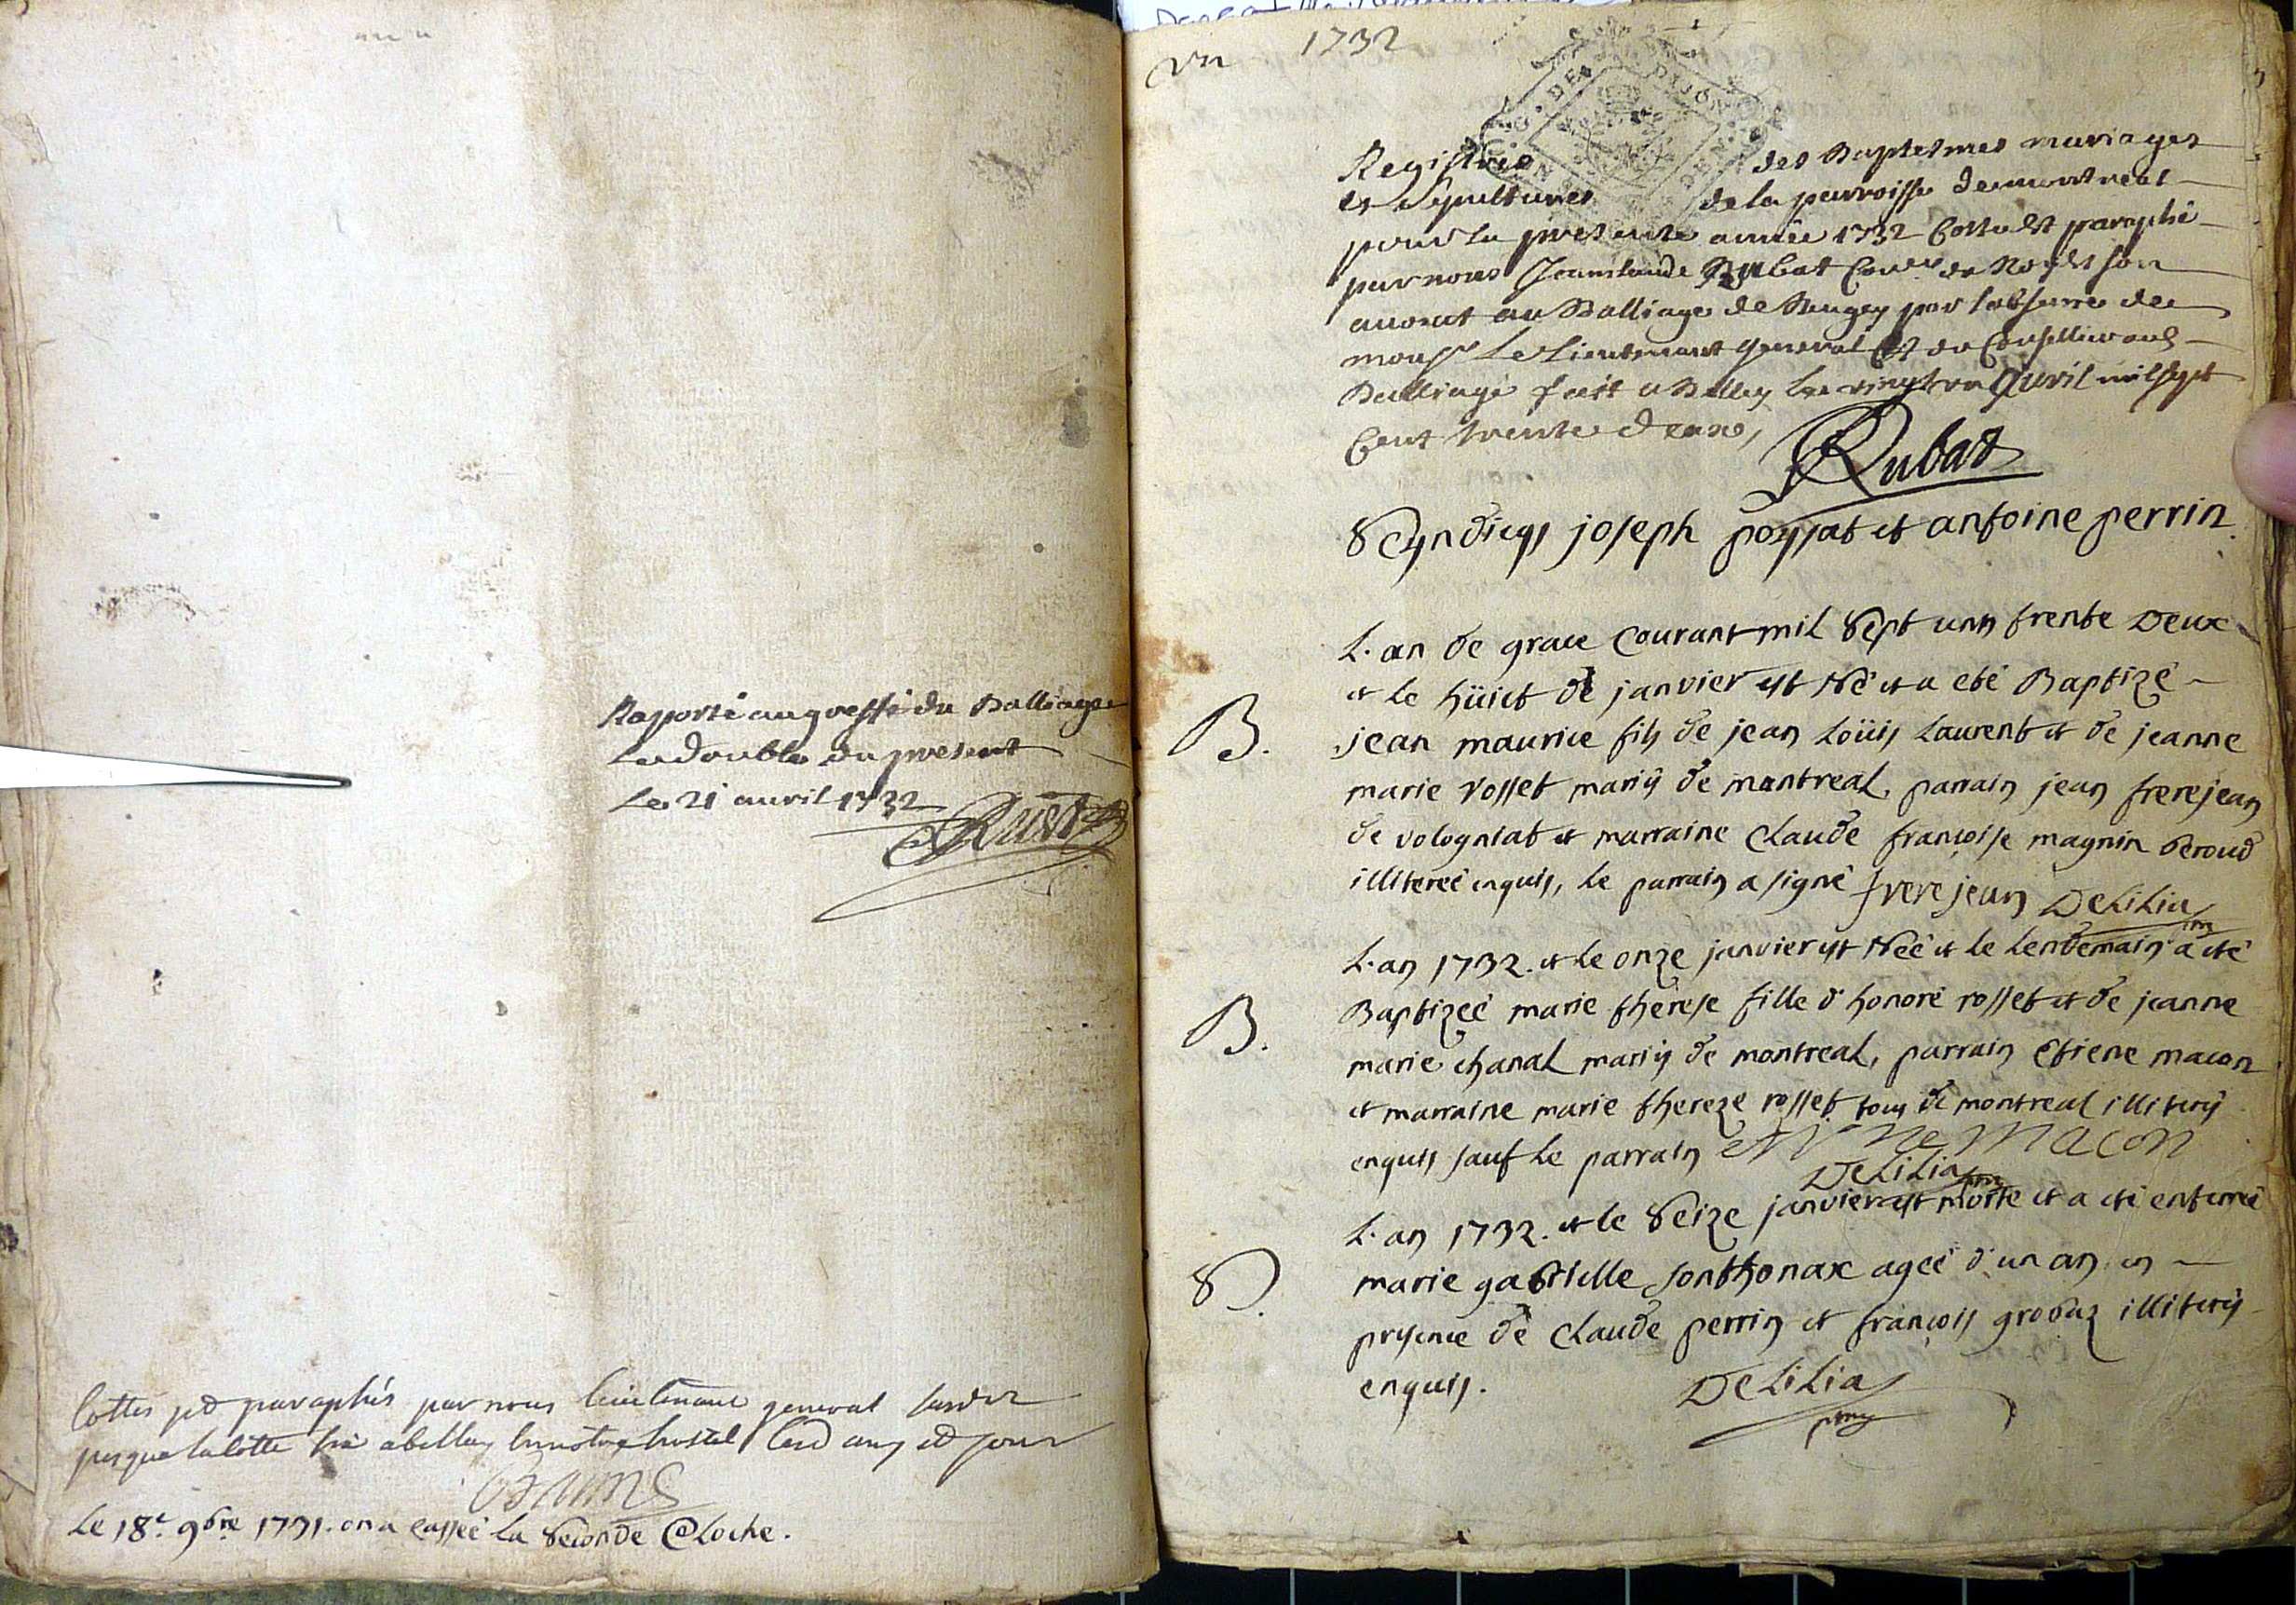 Raporté au greffe du Balliage
Le double du present
Le 21 avril 1732
Cottés et paraphés par nous lieutenant general
Le 18e 9bre 1731. on a cassée la seconde Cloche.
vn 1732
Registre des Baptesmes mariages
et Sepultures de la parroisse de montreal
pour la presente année 1732 Cotté et paraphé
par nous Jean Claude Rubat Coner du Roy et son
avocat au Balliage de Bugey par l'absence de
monsr Le Lieutenant general et du Conseillier aud
Balliage fait a Belley Le vingt un avril mil sept
Cent trente deux,
Rubat
Scyndicqs joseph poyssat et antoine perrin.
L'an de grace Courant mil sept cents trente Deux
et le huict de janvier est né et a eté Baptizé
B. jean maurice fils de jean Loüis Laurent et de jeanne
marie rosset mariés de montreal, parrain jean frerejean
de volognat et marraine Claude françoise magnin beroud
illitereé enquis, Le parrain a signé frere jean DeLiLia
L'an 1732. et Le onze janvier est néé et le lendemain a eté
B. Baptizéé marie therese fille d'honoré rosset et de jeanne
marie chanal mariés de montreal, parrain Etiene macon
et marraine marie thereze rosset tous de montreal illiterés
enquis sauf Le parrain etienne macon
DeLiLia
L'an 1732. et le seize janvier est morte et a eté enterreé
S. marie gabrielle sonthonax ageé d'un an en
presence de Claude perrin et françois grobaz illiterés
enquis. DeLiLia